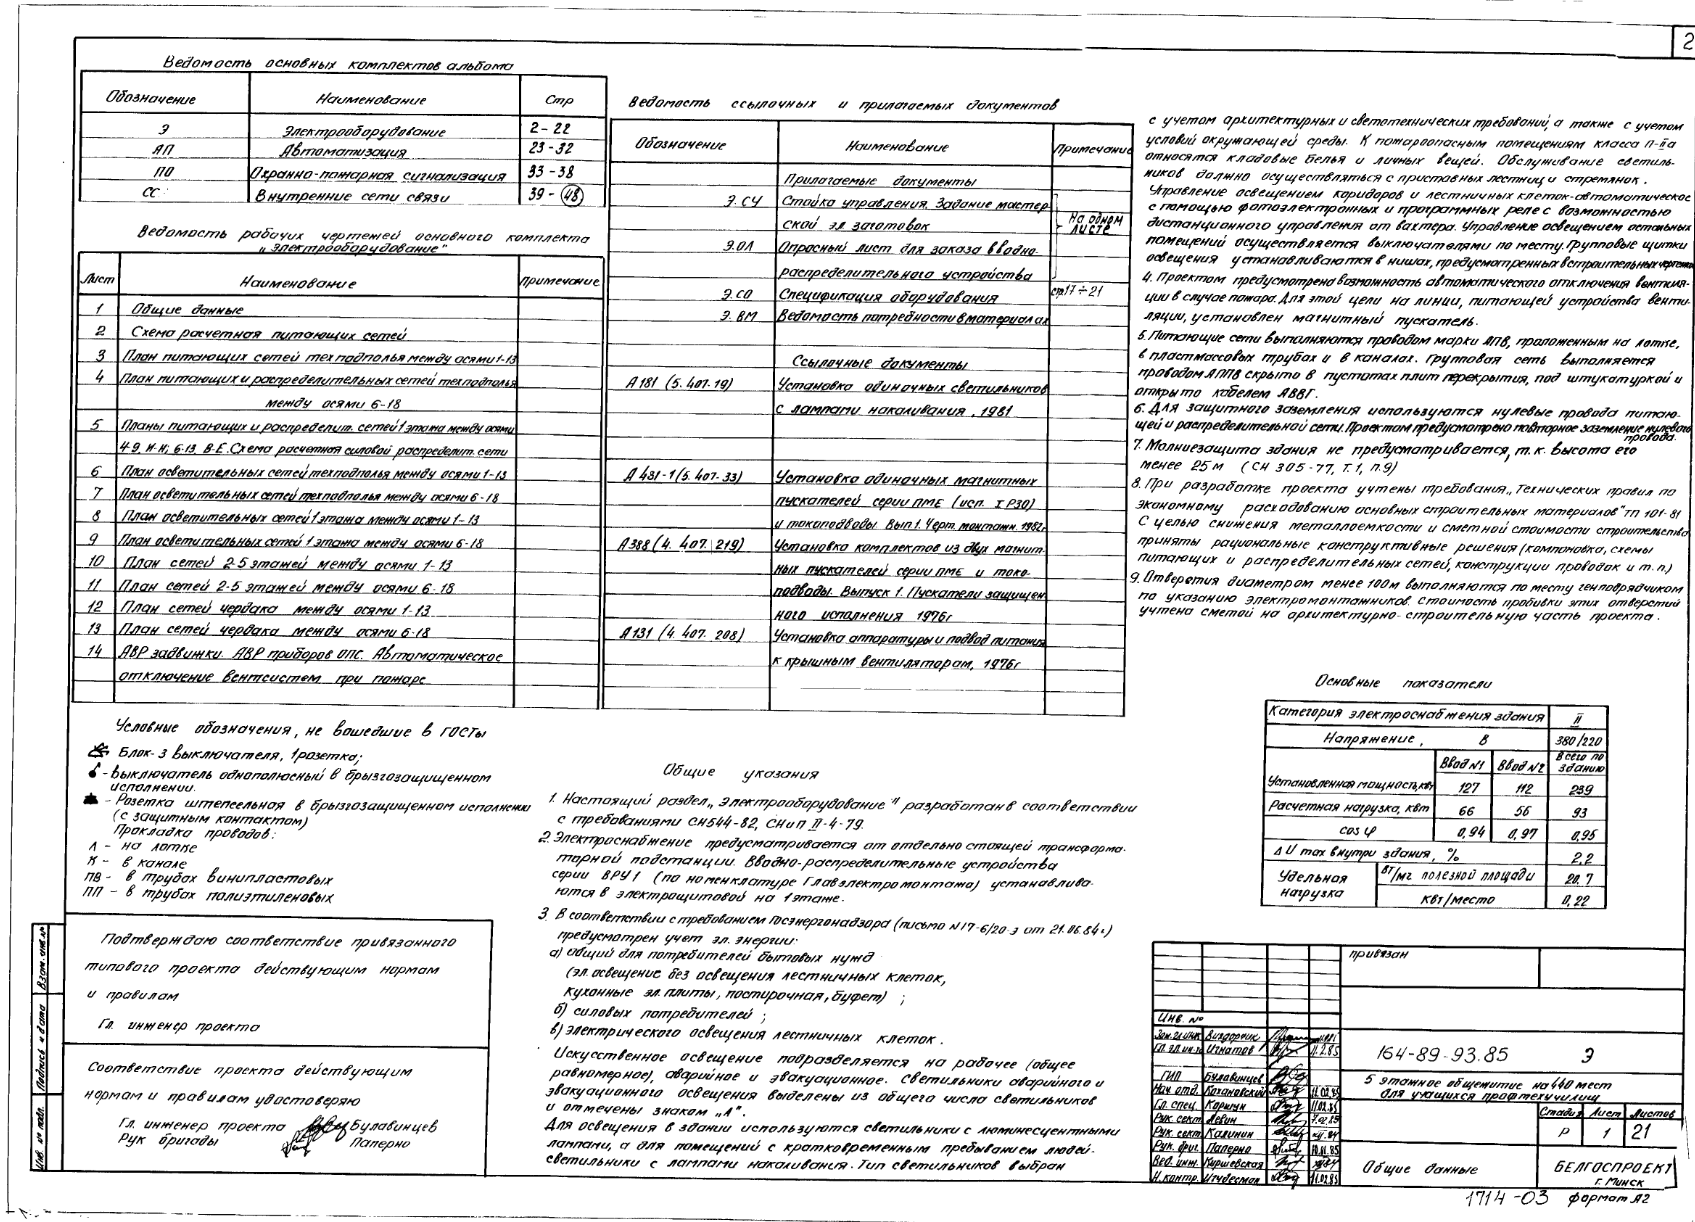 2
Ведомость основных комплектов альбома
Обозначение Наименование Стр
Э Электрооборудование 2-22
АП Автоматизация 23-32
ПО Охранно-пожарная сигнализация 33-38
СС Внутренние сети связи 39-48
Ведомость рабочих чертежей основного комплекта
„Электрооборудование"
Лист Наименование Примечание
1 Общие данные
2 Схема расчетная питающих сетей
3 План питающих сетей техподполья между осями 1-13
4 План питающих и распределительных сетей техподполья
между осями 6-18
5 Планы питающих и распределит. сетей 1 этажа между осями
4-9, И-Н; 6-13, В-Е. Схема расчетная силовой распределит. сети
6 План осветительных сетей техподполья между осями 1-13
7 План осветительных сетей техподполья между осями 6-18
8 План осветительных сетей 1 этажа между осями 1-13
9 План осветительных сетей 1 этажа между осями 6-18
10 План сетей 2-5 этажей между осями 1-13
11 План сетей 2-5 этажей между осями 6-18
12 План сетей чердака между осями 1-13
13 План сетей чердака между осями 6-18
14 АВР задвижки АВР приборов ОПС. Автоматическое
отключение вентсистем при пожаре
Условные обозначения, не вошедшие в ГОСТы
Блок-3 выключателя, 1 розетка;
- Выключатель однополюсный в брызгозащищенном
исполнении.
- Розетка штепсельная в брызгозащищенном исполнении
(с защитным контактом)
Прокладка проводов:
Л - на лотке
К - в канале
ПВ - в трубах винипластовых
ПП - в трубах полиэтиленовых
Подтверждаю соответствие привязанного
типового проекта действующим нормам
и правилам
Гл. инженер проекта
Соответствие проекта действующим
нормам и правилам удостоверяю
Гл. инженер проекта Булавинцев
Рук бригады Паперно
Инв. № подл. Подпись и дата Взам. инв. №
Ведомость ссылочных и прилагаемых документов
Обозначение Наименование Примечание
Прилагаемые документы
Э.СУ Стойка управления. Задание мастер-
ской эл. заготовок На одном листе
Э.ОЛ Опросный лист для заказа вводно-
распределительного устройства
Э.СО Спецификация оборудования стр.17÷21
Э.ВМ Ведомость потребности в материалах
Ссылочные документы
А181 (5.407.19) Установка одиночных светильников
с лампами накаливания, 1981
А431-1 (5.407-33) Установка одиночных магнитных
пускателей серии ПМЕ (исп. IР30)
и токоподводы. Вып 1. Черт. монтажн. 1982г.
А388 (4.407.219) Установка комплектов из двух магнит-
ных пускателей серии ПМЕ и токо-
подводы. Выпуск 1. Пускатели защищен-
ного исполнения 1976г
А131 (4.407.208) Установка аппаратуры и подвод питания
к крышным вентиляторам, 1976г
Общие указания
1. Настоящий раздел „Электрооборудование" разработан в соответствии
с требованиями СН544-82, СНиП II-4-79.
2. Электроснабжение предусматривается от отдельно стоящей трансформа-
торной подстанции. Вводно-распределительные устройства
серии ВРУ1 (по номенклатуре Главэлектромонтажа) устанавлива-
ются в электрощитовой на 1 этаже.
3. В соответствии с требованием Госэнергонадзора (письмо №17-6/20-э от 21.06.84г)
предусмотрен учет эл. энергии:
а) общий для потребителей бытовых нужд
(эл. освещение без освещения лестничных клеток,
кухонные эл. плиты, постирочная, буфет) ;
б) силовых потребителей ;
в) электрического освещения лестничных клеток.
Искусственное освещение подразделяется на рабочее (общее
равномерное), аварийное и эвакуационное. Светильники аварийного и
эвакуационного освещения выделены из общего числа светильников
и отмечены знаком „А".
Для освещения в здании используются светильники с люминесцентными
лампами, а для помещений с кратковременным пребыванием людей-
светильники с лампами накаливания. Тип светильников выбран
с учетом архитектурных и светотехнических требований, а также с учетом
условий окружающей среды. К пожароопасным помещениям класса П-IIа
относятся кладовые белья и личных вещей. Обслуживание светиль-
ников должно осуществляться с приставных лестниц и стремянок.
Управление освещением коридоров и лестничных клеток-автоматическое
с помощью фотоэлектронных и программных реле с возможностью
дистанционного управления от вахтера. Управление освещением остальных
помещений осуществляется выключателями по месту. Групповые щитки
освещения устанавливаются в нишах, предусмотренных в строительных чертежах
4. Проектом предусмотрена возможность автоматического отключения вентиля-
ции в случае пожара. Для этой цели на линии, питающей устройства венти-
ляции, установлен магнитный пускатель.
5. Питающие сети выполняются проводом марки АПВ, проложенным на лотке,
в пластмассовых трубах и в каналах. Групповая сеть выполняется
проводом АППВ скрыто в пустотах плит перекрытия, под штукатуркой и
открыто кабелем АВВГ.
6. Для защитного заземления используются нулевые провода питаю-
щей и распределительной сети. Проектом предусмотрено повторное заземление нулевого
провода.
7. Молниезащита здания не предусматривается, т.к. высота его
менее 25м (СН 305-77, Т.1, п.9)
8. При разработке проекта учтены требования „Технических правил по
экономному расходованию основных строительных материалов" ТП 101-81
С целью снижения металлоемкости и сметной стоимости строительства
приняты рациональные конструктивные решения (компоновка, схемы
питающих и распределительных сетей, конструкции проводок и т.п.)
9. Отверстия диаметром менее 100м выполняются по месту генподрядчиком
по указанию электромонтажников. Стоимость пробивки этих отверстий
учтена сметой на архитектурно-строительную часть проекта.
Основные показатели
Категория электроснабжения здания II
Напряжение, В 380/220
Ввод №1 Ввод №2 Всего по зданию
Установленная мощность, квт 127 112 239
Расчетная нагрузка, квт 66 56 93
cos φ 0,94 0,97 0,95
Δ U max внутри здания, % 2,2
Удельная нагрузка Вт/м2 полезной площади 20.7
Квт/место 0,22
привязан
Инв. №
Гл. эл. ин-та Игнатов
ГИП Булавинцев
Нач. отд. Кохановский 11.02.85
Гл. спец. Коршун 11.02.85
Рук. сект. Левин
Рук. сект. Калинин
Рук. бриг. Паперно
Вед. инж. Киршевская
Н. контр. 11.02.85
164-89-93.85 Э
5 этажное общежитие на 440 мест
для учащихся профтехучилищ
Стадия Лист Листов
Р 1 21
Общие данные
БЕЛГОСПРОЕКТ
г. Минск
1714-03 формат А2